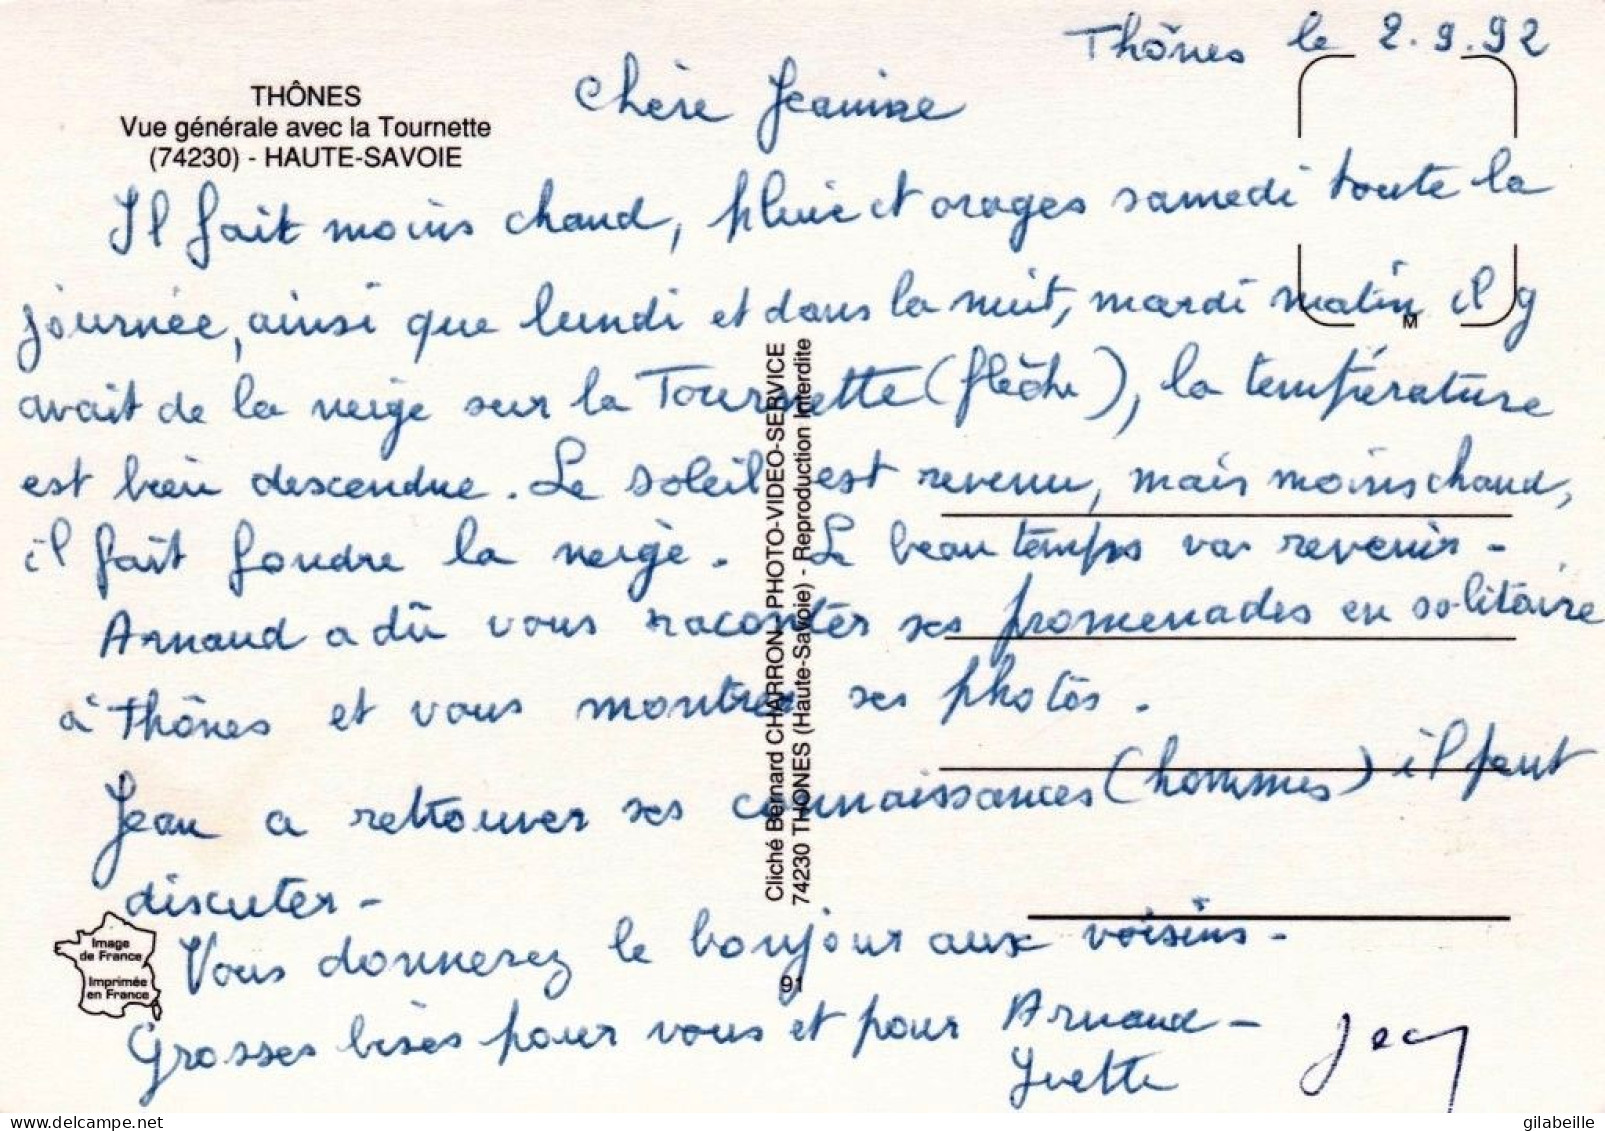 Thônes le 2.9.92
THÔNES
Vue générale avec la Tournette
(74230) - HAUTE-SAVOIE
Chère Jeanine
Il fait moins chaud, pluie et orages samedi toute la
journée, ainsi que lundi et dans la nuit, mardi matin il y
avait de la neige sur la Tournette (flèche), la température
est bien descendue. Le soleil est revenu, mais moins chaud,
il fait fondre la neige. Le beau temps va revenir -
Arnaud a dû vous raconter ses promenades en solitaire
à Thônes et vous montrer ses photos.
Jean a retrouver ses connaissances (hommes) il faut
discuter -
Vous donnerez le bonjour aux voisins -
Grosses bises pour vous et pour Arnaud -
Yvette
Jean
M
Cliché Bernard CHARRON PHOTO-VIDEO-SERVICE
74230 THONES (Haute-Savoie) - Reproduction Interdite
91
Image
de France
Imprimée
en France
delcampe.net
gilabeille